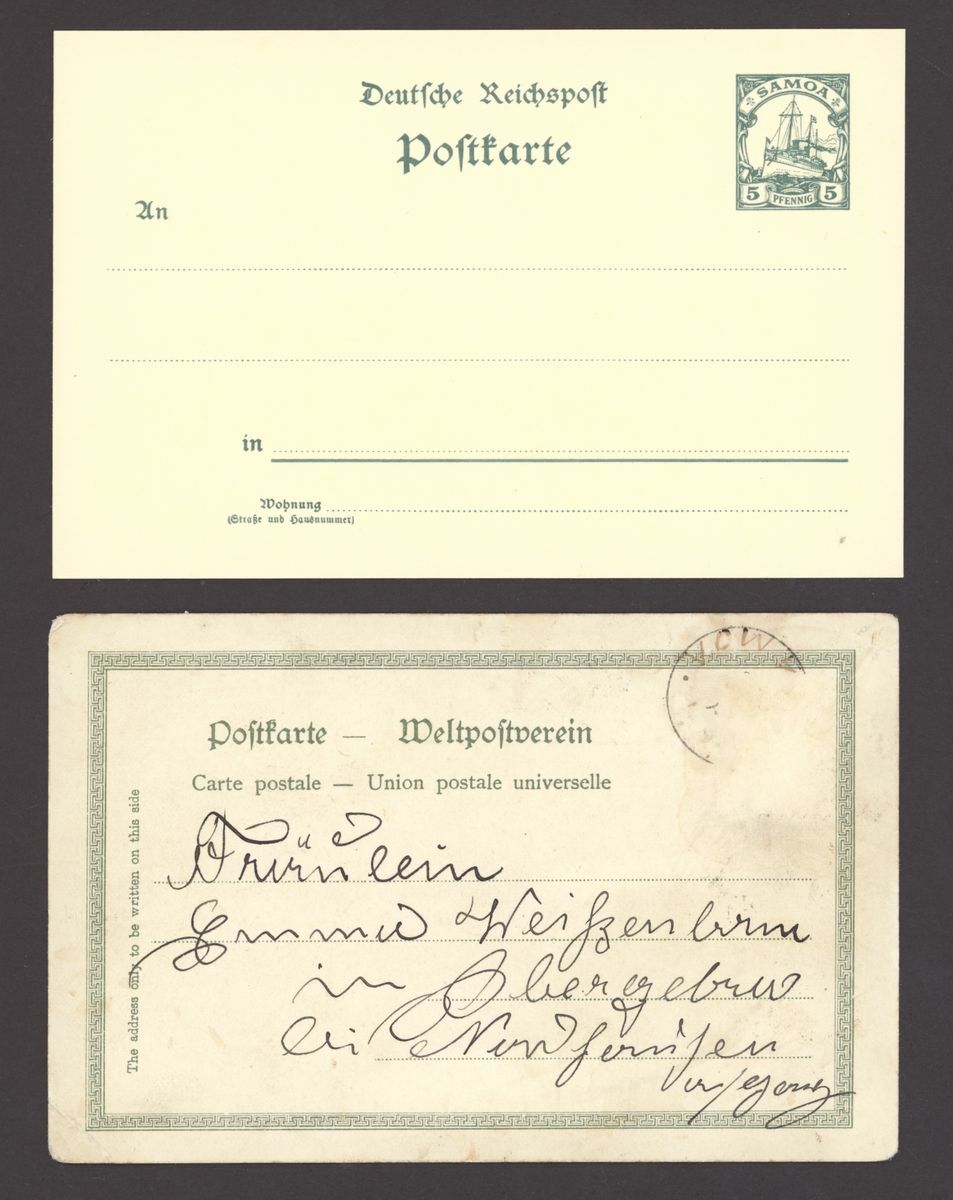 Deutsche Reichspost
SAMOA
Postkarte
5 PFENNIG 5
An
in
Wohnung
(Straße und Hausnummer)
Postkarte — Weltpostverein
Carte postale — Union postale universelle
The address only to be written on this side
Fräulein
Emma Weißenborn
in Obergebra
bei Nordhausen